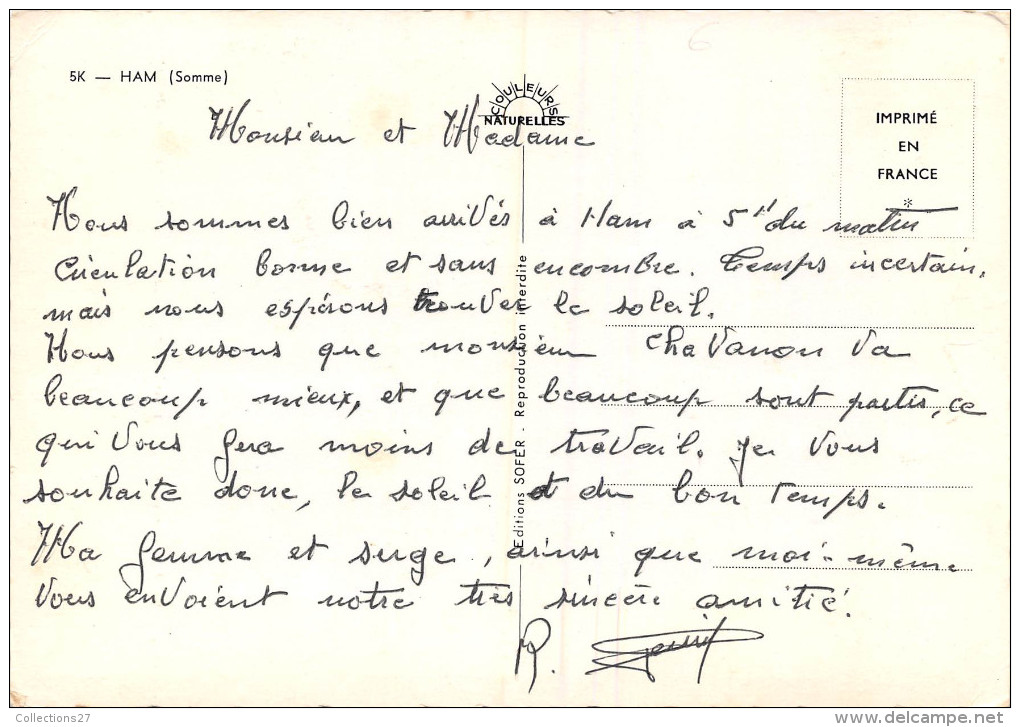 6
5K — HAM (Somme)
COULEURS
NATURELLES
IMPRIMÉ
EN
FRANCE
*
Monsieur et Madame
Nous sommes bien arrivés à Ham à 5H du matin
Circulation bonne et sans encombre. Temps incertain,
mais nous espérons trouver le soleil.
Nous pensons que monsieur Chavanon va
beaucoup mieux, et que beaucoup sont partis, ce
qui vous fera moins de travail. Je vous
souhaite donc, le soleil et du bon temps.
Ma femme et serge, ainsi que moi-même
vous envoient notre très sincère amitié.
R.
Editions SOFER . Reproduction interdite
Collections27
www.delcampe.net